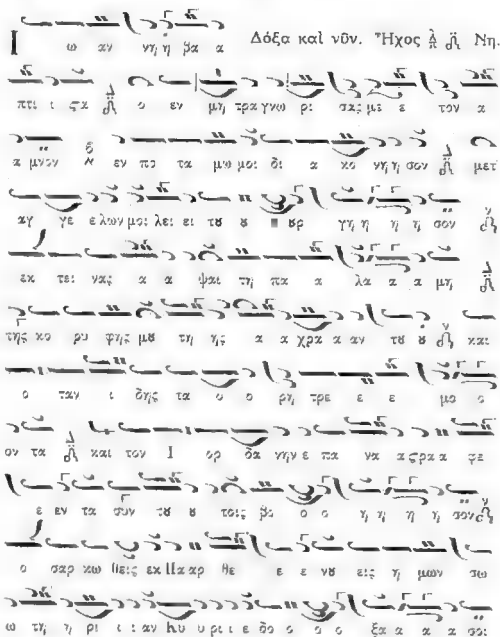 Ι ω αν νη η βα α Δόξα καὶ νῦν. Ἦχος Νη.
πτι ι ϛα ο εν μη τρα γνω ρι σας με ε τον α
α μνον εν πο τα μω μοι δι α κο νη η σον μετ'
αγ γε ε λων μοι λει ει τȣ ȣ ȣρ γη η η η σον
εκ τει νας α α ψαι τη πα α λα α α μη
της κο ρυ φης μȣ τη ης α α χρα α αν τȣ ȣ και
ο ταν ι δης τα ο ο ρη τρε ε ε μο ο
ον τα και τον Ι ορ δα νην ε πα να α ϛρα α φε
ε εν τα συν τȣ ȣ τοις βο ο ο η η η η σον
ο σαρ κω θεις εκ Πα αρ θε ε ε νȣ εις η μων σω
ω τη η ρι ι ι αν Κυ υ ρι ι ε δο ο ο ο ξα α α α σοι